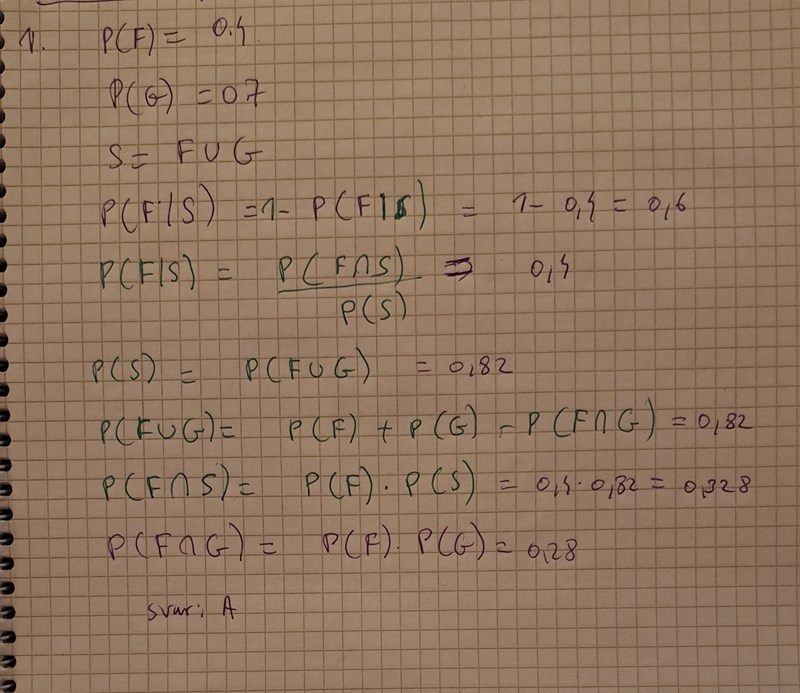 1. P(F) = 0.4
P(G) = 07
S = F∪G
P(F|S) = 1- P(F|S) = 1- 0,4 = 0,6
P(F|S) = P(F∩S) / P(S) = 0,4
P(S) = P(F∪G) = 0,82
P(F∪G) = P(F) + P(G) - P(F∩G) = 0,82
P(F∩S) = P(F) · P(S) = 0,4 · 0,82 = 0,328
P(F∩G) = P(F) · P(G) = 0,28
svar: A